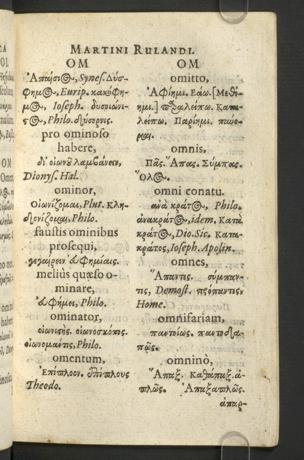 MARTINI RULANDI.
OM
Ἀπαίσι⊙, Synes. Δύσ-
φημ⊙, Eurip. κακόφη-
μ⊙, Ioseph. δυσοιώνι-
ς⊙, Philo.
pro ominoso
habere,
δι' οἰωνȣ̃ λαμβάνειν,
Dionys. Hal.
ominor,
Οἰωνίζομαι, Plut. Κλη-
δονίζομαι, Philo.
faustis ominibus
prosequi,
εὐφημίαις.
meliùs quæso o-
minare,
εὐφήμει, Philo.
ominator,
οἰωνιςὴς. οἰωνοσκόπος.
οἰωνομάντις, Philo.
omentum,
Ἐπίπλοον. ἐπίπλους
Theodo.
OM
omitto,
Ἀφίημι. Ἐάω. [Μεθί-
ημι.] παραλείπω. Κατα-
λείπω. Παρίημι.
omnis,
Πᾶς. Ἅπας. Σύμπας.
Ὅλ⊙.
omni conatu.
ἀνὰ κράτ⊙, Philo.
ἀνακράτ⊙, idem. Κατὰ
κράτ⊙, Dio. Sic. Κατα-
κράτος, Ioseph. Apolin.
omnes,
Ἅπαντες. σύμπαν-
τες, Demost. πρόπαντες,
Home.
omnifariam,
παντοίως. πανταχ-
πῶς.
omninò,
Ἅπαξ. Καθάπαξ. ἁ-
πλῶς. Ἁπαξαπλῶς.
ἁπαξ-